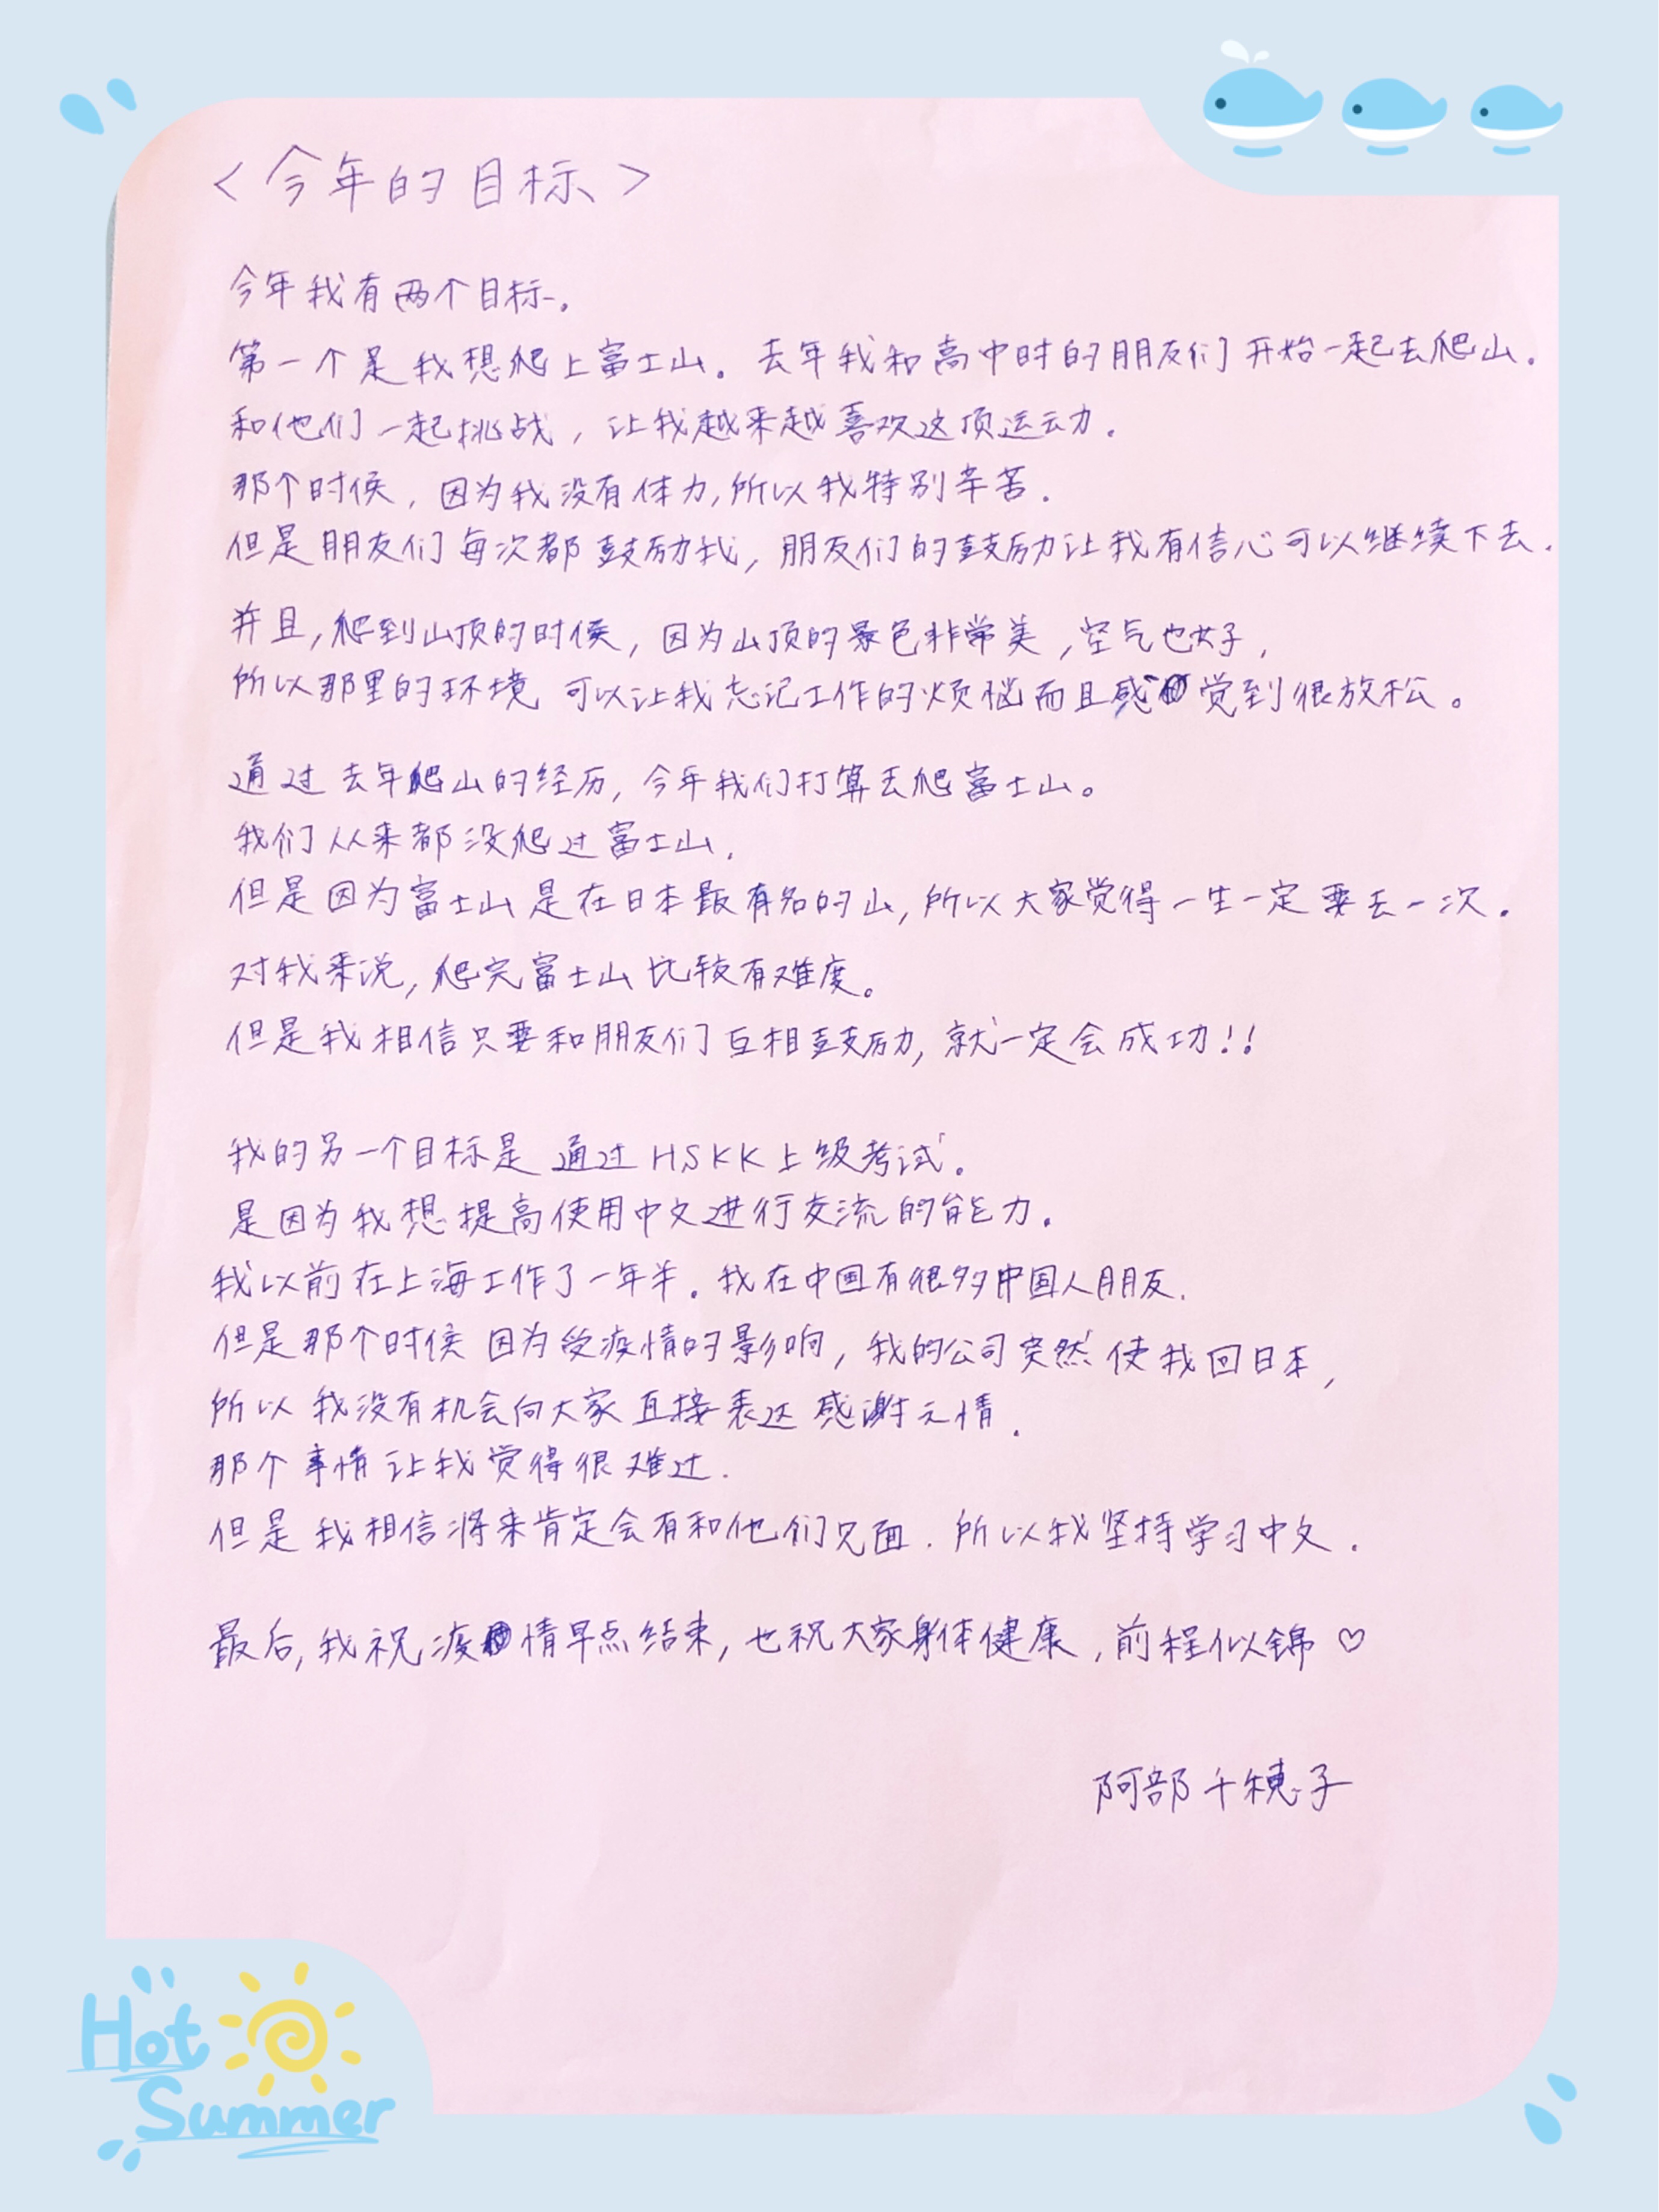 <今年的目标>
今年我有两个目标。
第一个是我想爬上富士山。去年我和高中时的朋友们开始一起去爬山.
和他们一起挑战，让我越来越喜欢这项运动.
那个时候，因为我没有体力,所以我特别辛苦.
但是朋友们每次都鼓励我，朋友们的鼓励让我有信心可以继续下去.
并且,爬到山顶的时候，因为山顶的景色非常美，空气也好，
所以那里的环境可以让我忘记工作的烦恼而且感觉到很放松。
通过去年爬山的经历，今年我们打算去爬富士山。
我们从来都没爬过富士山.
但是因为富士山是在日本最有名的山,所以大家觉得一生一定要去一次.
对我来说,爬完富士山比较有难度。
但是我相信只要和朋友们互相鼓励,就一定会成功!!
我的另一个目标是通过HSKK上级考试。
是因为我想提高使用中文进行交流的能力.
我以前在上海工作了一年半.我在中国有很多中国人朋友.
但是那个时候因为受疫情的影响，我的公司突然使我回日本，
所以我没有机会向大家直接表达感谢之情.
那个事情让我觉得很难过.
但是我相信将来肯定会有和他们见面.所以我坚持学习中文.
最后,我祝疫情早点结束,也祝大家身体健康，前程似锦♡
阿部千穂子
Hot
Summer